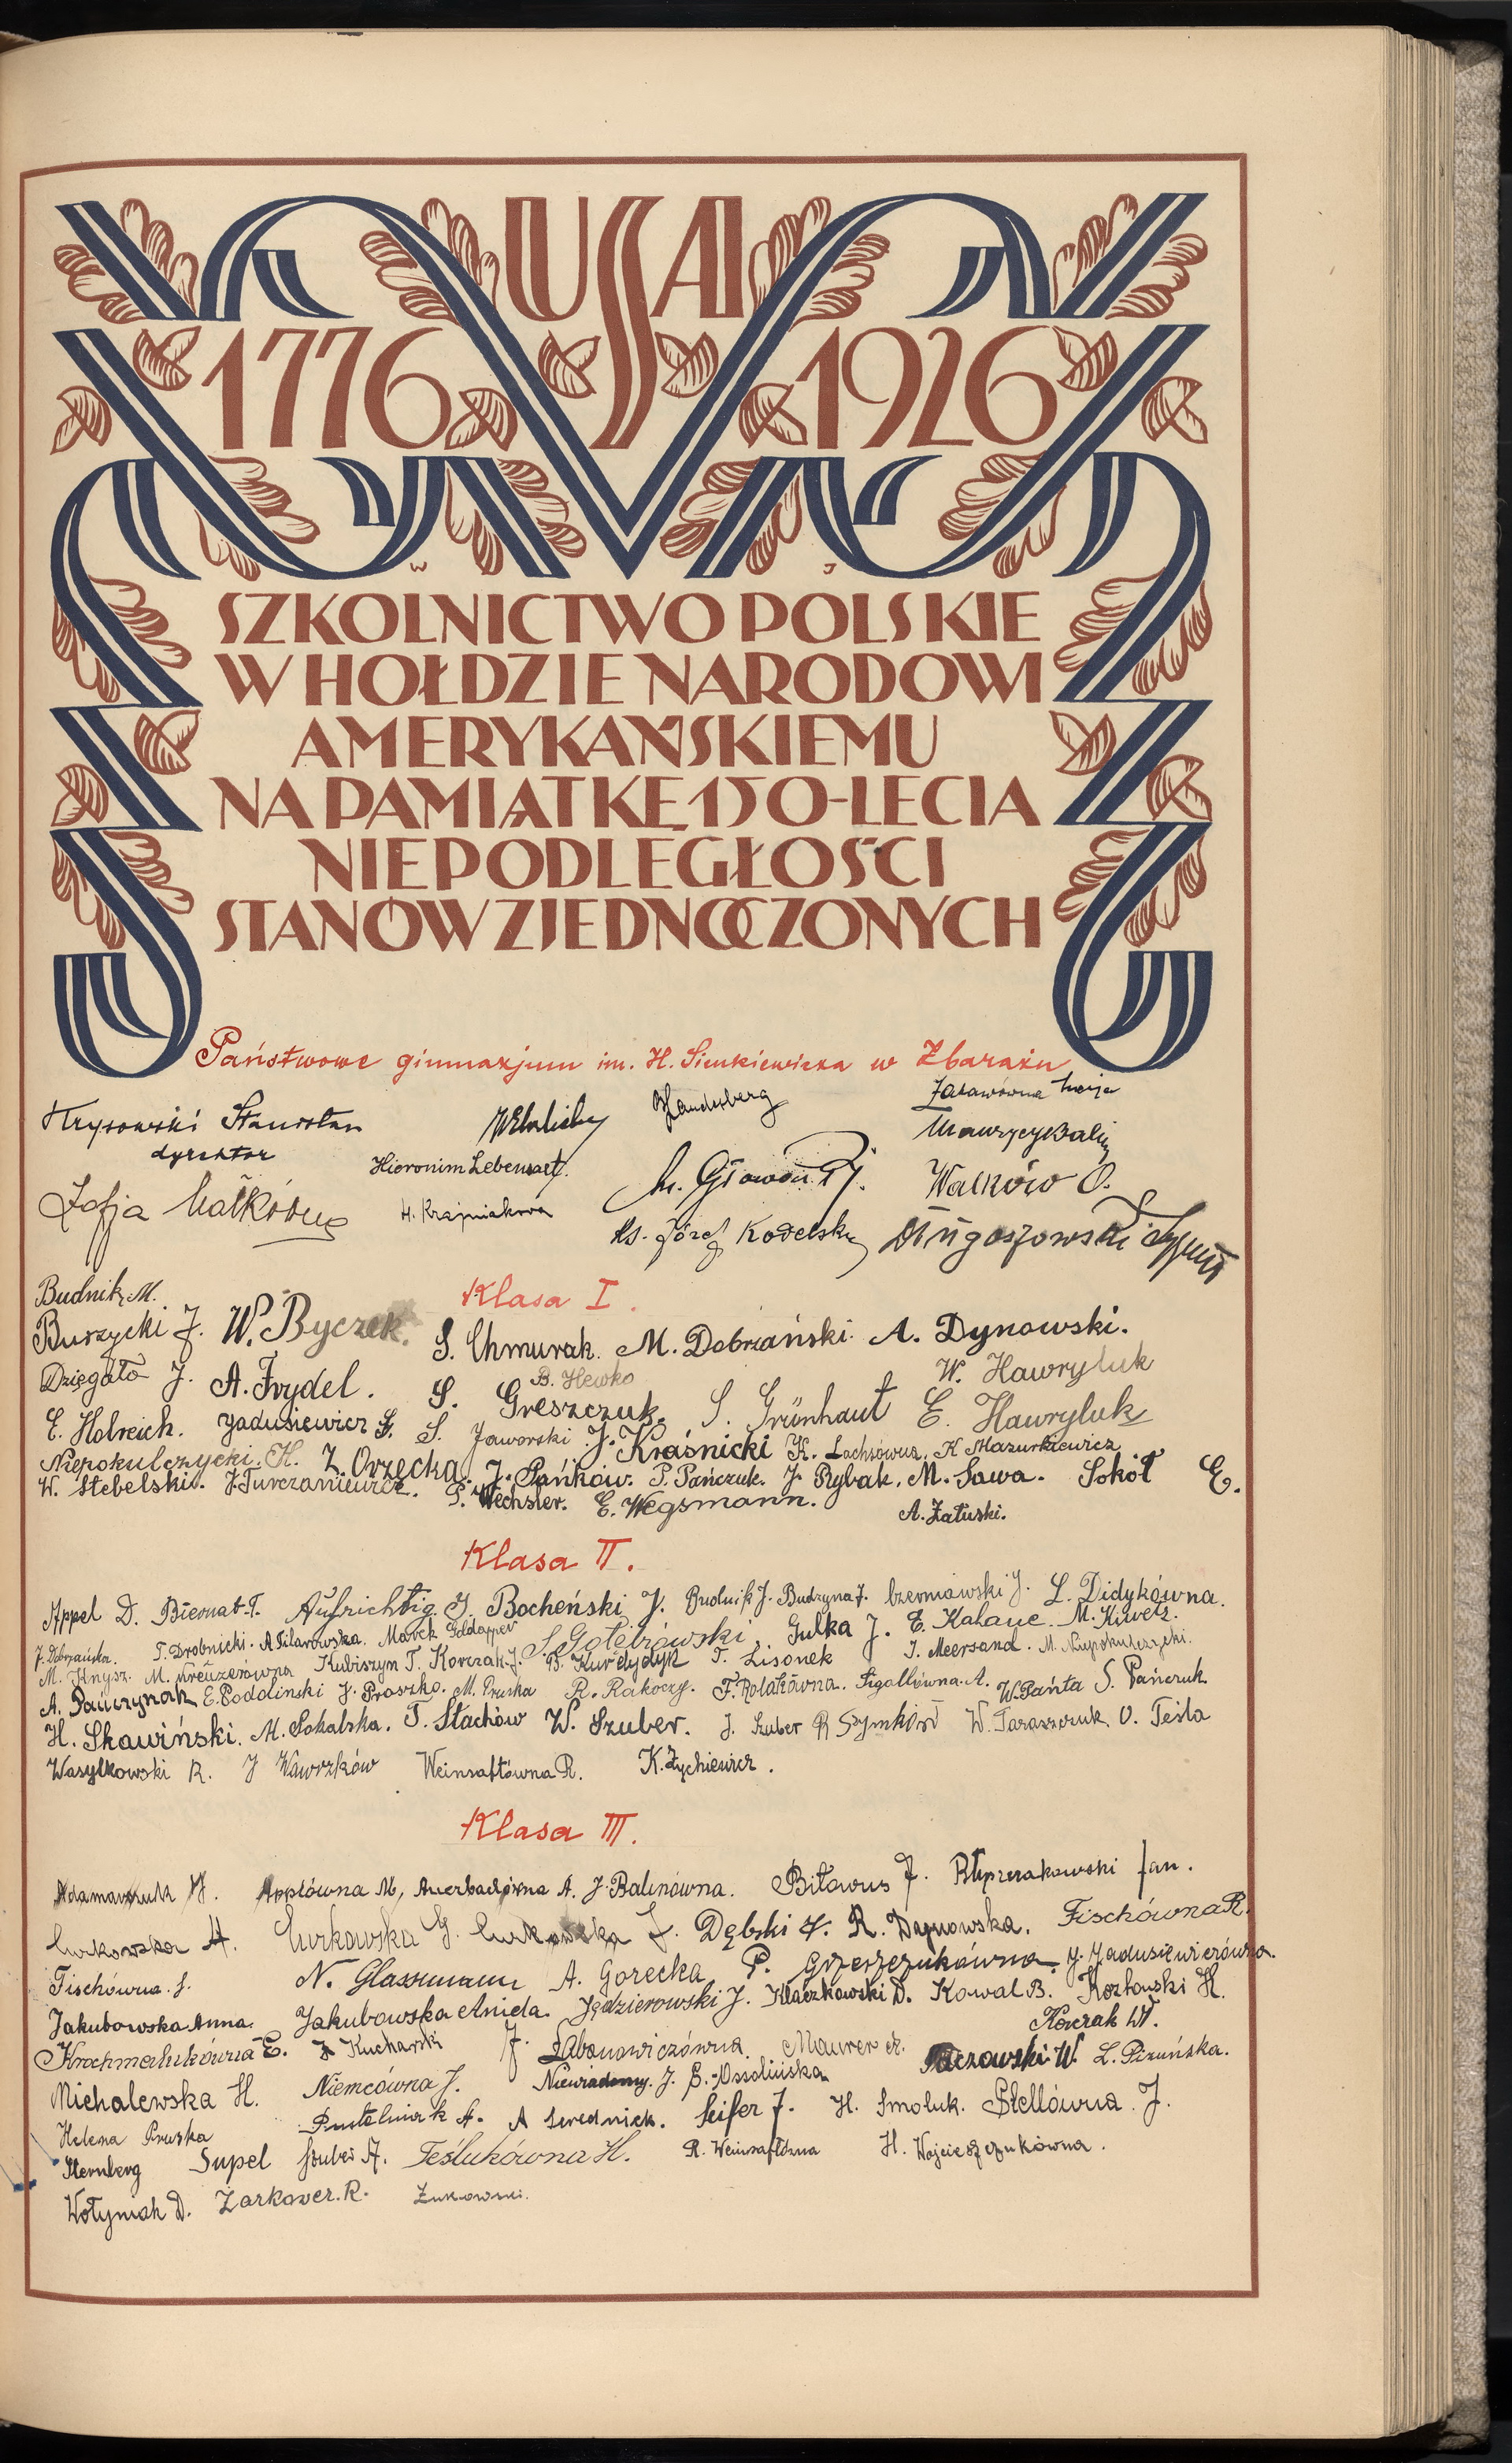 USA
1776 1926
W J
SZKOLNICTWO POLSKIE
W HOŁDZIE NARODOWI
AMERYKAŃSKIEMU
NA PAMIĄTKĘ 150-LECIA
NIEPODLEGŁOŚCI
STANÓW ZJEDNOCZONYCH
Państwowe gimnazjum im. H. Sienkiewicza w Zbarażu
Krysowski Stanisław
dyrektor
Hieronim
Walków O.
Zofja
H. Krajniakowa
Ks. Józef
Klasa I.
Budnik M.
Burzycki J. W. Byczek. S. Chmurak. M. Dobrzański. A. Dynowski.
Dzięgało J. A. Frydel. S. Greszczuk. B. Hewko S. Grünhaut W. Hawryluk
E. Holreich. Jadusiewicz S. S. Jaworski J. Kraśnicki K. Lachsówna. K Mazurkiewicz E. Hawryluk
Niepokulczycki. H. Z. Orzecka. J. Pańków. P. Pańczuk. J. Rybak. M. Sawa. Sokół E.
W. Stebelski. J. Turczaniewicz. P. Wechsler. E. Wegsmann. A. Załuski.
Klasa II.
Appel D. Biernat T. Aufrichtig J. Bocheński J. Budnik J. Budzyna J. Czerniawski J. L. Didykówna.
J. Dobrzańska. T. Drobnicki. A. Filarowska. Marek Goldapper S. Gołębiowski. Gulka J. E. Kahane M. Kiwetz.
M. Knysz. M. Kreuzerówna Kubiszyn T. Korczak J. B. Kurdydyk T. Lisonek J. Meersand. M. Niepokulczycki.
A. Pańczyńak E. Podolinski J. Proszko. M. Pruska R. Rakoczy. F. Rolakówna. Sigallówna. A. W. Pańta S. Pańczuk
H. Skawiński. M. Sokalska. T. Stachów W. Szuber. J. Szuber R Szymków W. Taraszczuk. O. Tesla
Wasylkowski R. J Wawrzków Weinsaftówna R. K. Zychiewicz.
Klasa III.
Adamawczuk H. Applówna M, Auerbachówna A. J. Balinówna. Bitawus J. Błyszczakowski Jan.
Curkowska A. Curkowska G. Curkowska J. Dębski J. R. Dąnowska. Fischówna R.
Fischówna. S. N. Glassmann A. Gorecka P. Grzeszczukówna. J. Jadusiewiczówna.
Jakubowska Anna. Jakubowska Aniela. Jędzierowski J. Klaczkowski D. Kowal B. Kozłowski H.
Korczak W.
Krochmalukówna E. J. Kucharski J. Łabonowiczówna. Maurer A.
Michalewska H. Niemcówna J. Niewiadomy. J. B. Ossolińska Paczowski W. L. Pizuńska.
Helena Pruska Pustelnik A. A Serednick. Seifer J. H. Smoluk. Stellówna J.
Sternberg Supel Szuber A. Teślukówna H. R. Weinsaftówna H. Wojcieszczukówna.
Wołyniak D. Żarkower. R. Żukowski.